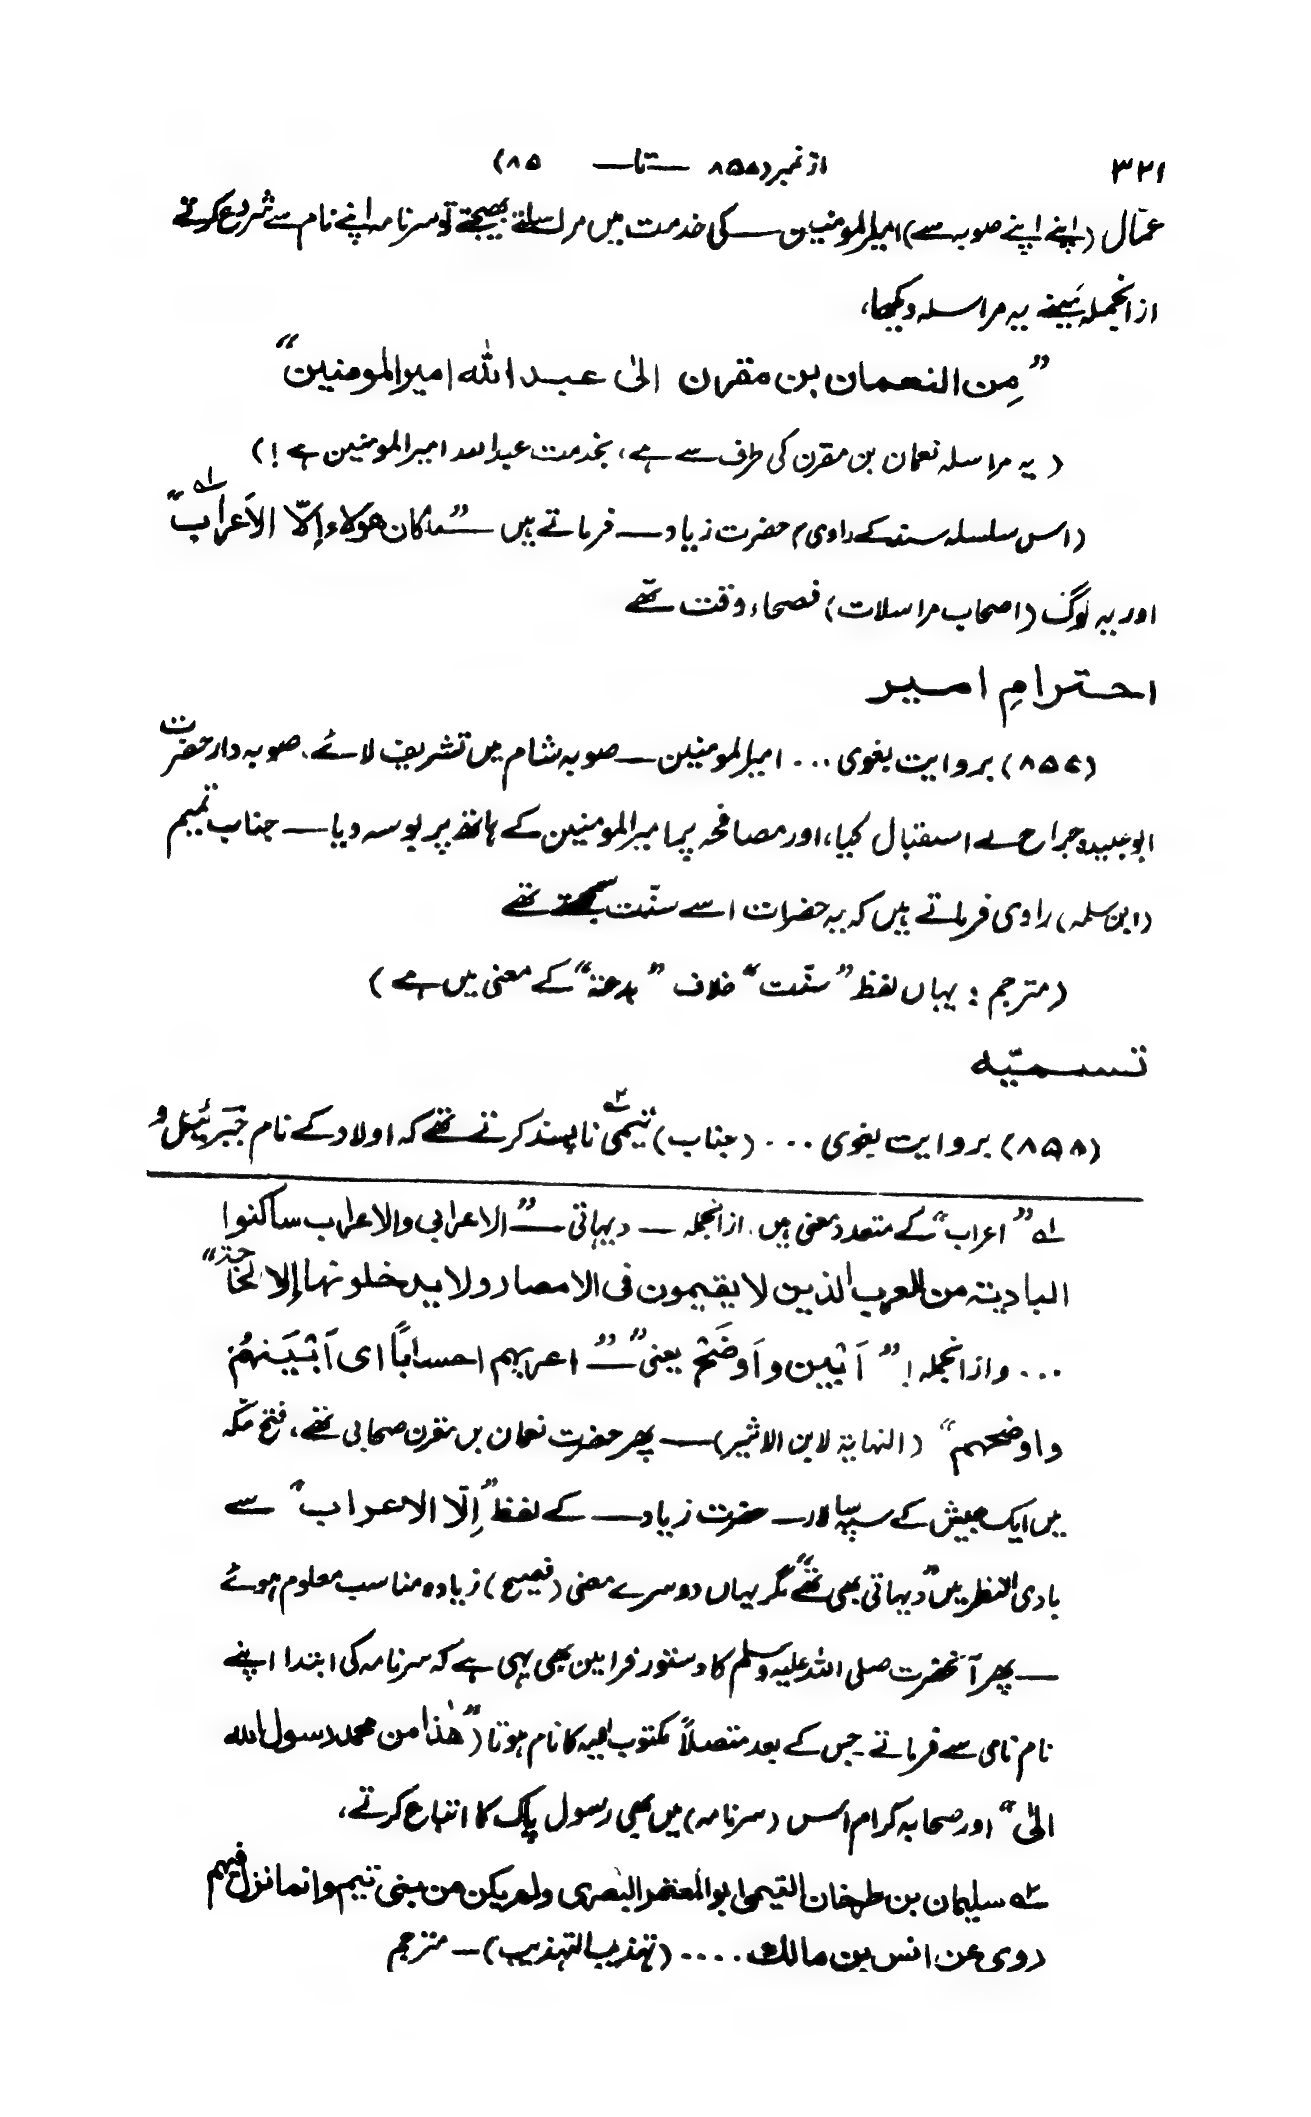 ۳۲۱ از نمبر (۸۵۸ — تا — ۸۵)
عمّال (اپنے اپنے صوبہ سے) امیرالمومنین — کی خدمت میں مراسلے بھیجتے تو سرنامہ اپنے نام سے شروع کرتے
از انجملہ میَنے یہ مراسلہ دیکھا،
”مِن النعمان بن مقرن الیٰ عبد اللہ امیر المومنین“
(یہ مراسلہ نعمان بن مقرن کی طرف سے ہے، بخدمت عبداللہ امیر المومنین ہے!)
(اس سلسلہ سند کے راوی م حضرت زیاد — فرماتے ہیں — ”ماکان ھولاء إلّا الأعراب“ ۱ـہ
اور یہ لوگ (اصحاب مراسلات) فصحاء وقت تھے
احترامِ امیر
(۸۵۷) بروایت بغوی ... امیرالمومنین — صوبہ شام میں تشریف لائے، صوبہ دار حضرت
ابو عبیدہ جراح نے استقبال کیا، اور مصافحہ پر امیرالمومنین کے ہاتھ پر بوسہ دیا — جناب تمیم
(ابن سلمہ) راوی فرماتے ہیں کہ یہ حضرات اسے سنّت سمجھتے تھے
(مترجم : یہاں لفظ ”سنّت“ خلاف ”بدعتہ“ کے معنی میں ہے)
تسمیّہ
(۸۵۸) بروایت بغوی ... (جناب) تیمی ۲ـہ ناپسند کرتے تھے کہ اولاد کے نام جَبرئیل و
۱ـہ ”اعراب“ کے متعدد معنی ہیں، از انجملہ — دیہاتی — ”الاعرابی والاعراب ساکنوا
البادیتہ من العرب الذین لا یقیمون فی الامصار ولا یدخلونہا إلا لحاجتہ“
... و از انجملہ! ”اَبْیَن و اَوضَحْ یعنی“ — ”اعربہم احساباً ای اَبْیَنَہُمْ
و اوضحہم“ (النہایۃ لابن الاثیر) — پھر حضرت نعمان بن مقرن صحابی تھے، فتح مکّہ
میں ایک جیش کے سپہ سالار — حضرت زیاد — کے لفظ ”إلّا الاعراب“ سے
بادی النظر میں ”دیہاتی بھی تھے“ مگر یہاں دوسرے معنی (فصیح) زیادہ مناسب معلوم ہوئے
— پھر آنحضرت صلی اللہ علیہ وسلم کا دستور فرامین بھی یہی ہے کہ سرنامہ کی ابتدا اپنے
نام نامی سے فرماتے جس کے بعد متصلاً مکتوب الیہ کا نام ہوتا (”ھٰذا من محمد رسول اللہ
الیٰ“ اور صحابہ کرام اس (سرنامہ) میں بھی رسول پاک کا اتباع کرتے،
۲ـہ سلیمان بن طرخان التیمی ابوالمعتمر البصری ولم یکن من بنی تیم و انما نزل فیہم
روی عن انس بن مالک .... (تہذیب التہذیب) — مترجم